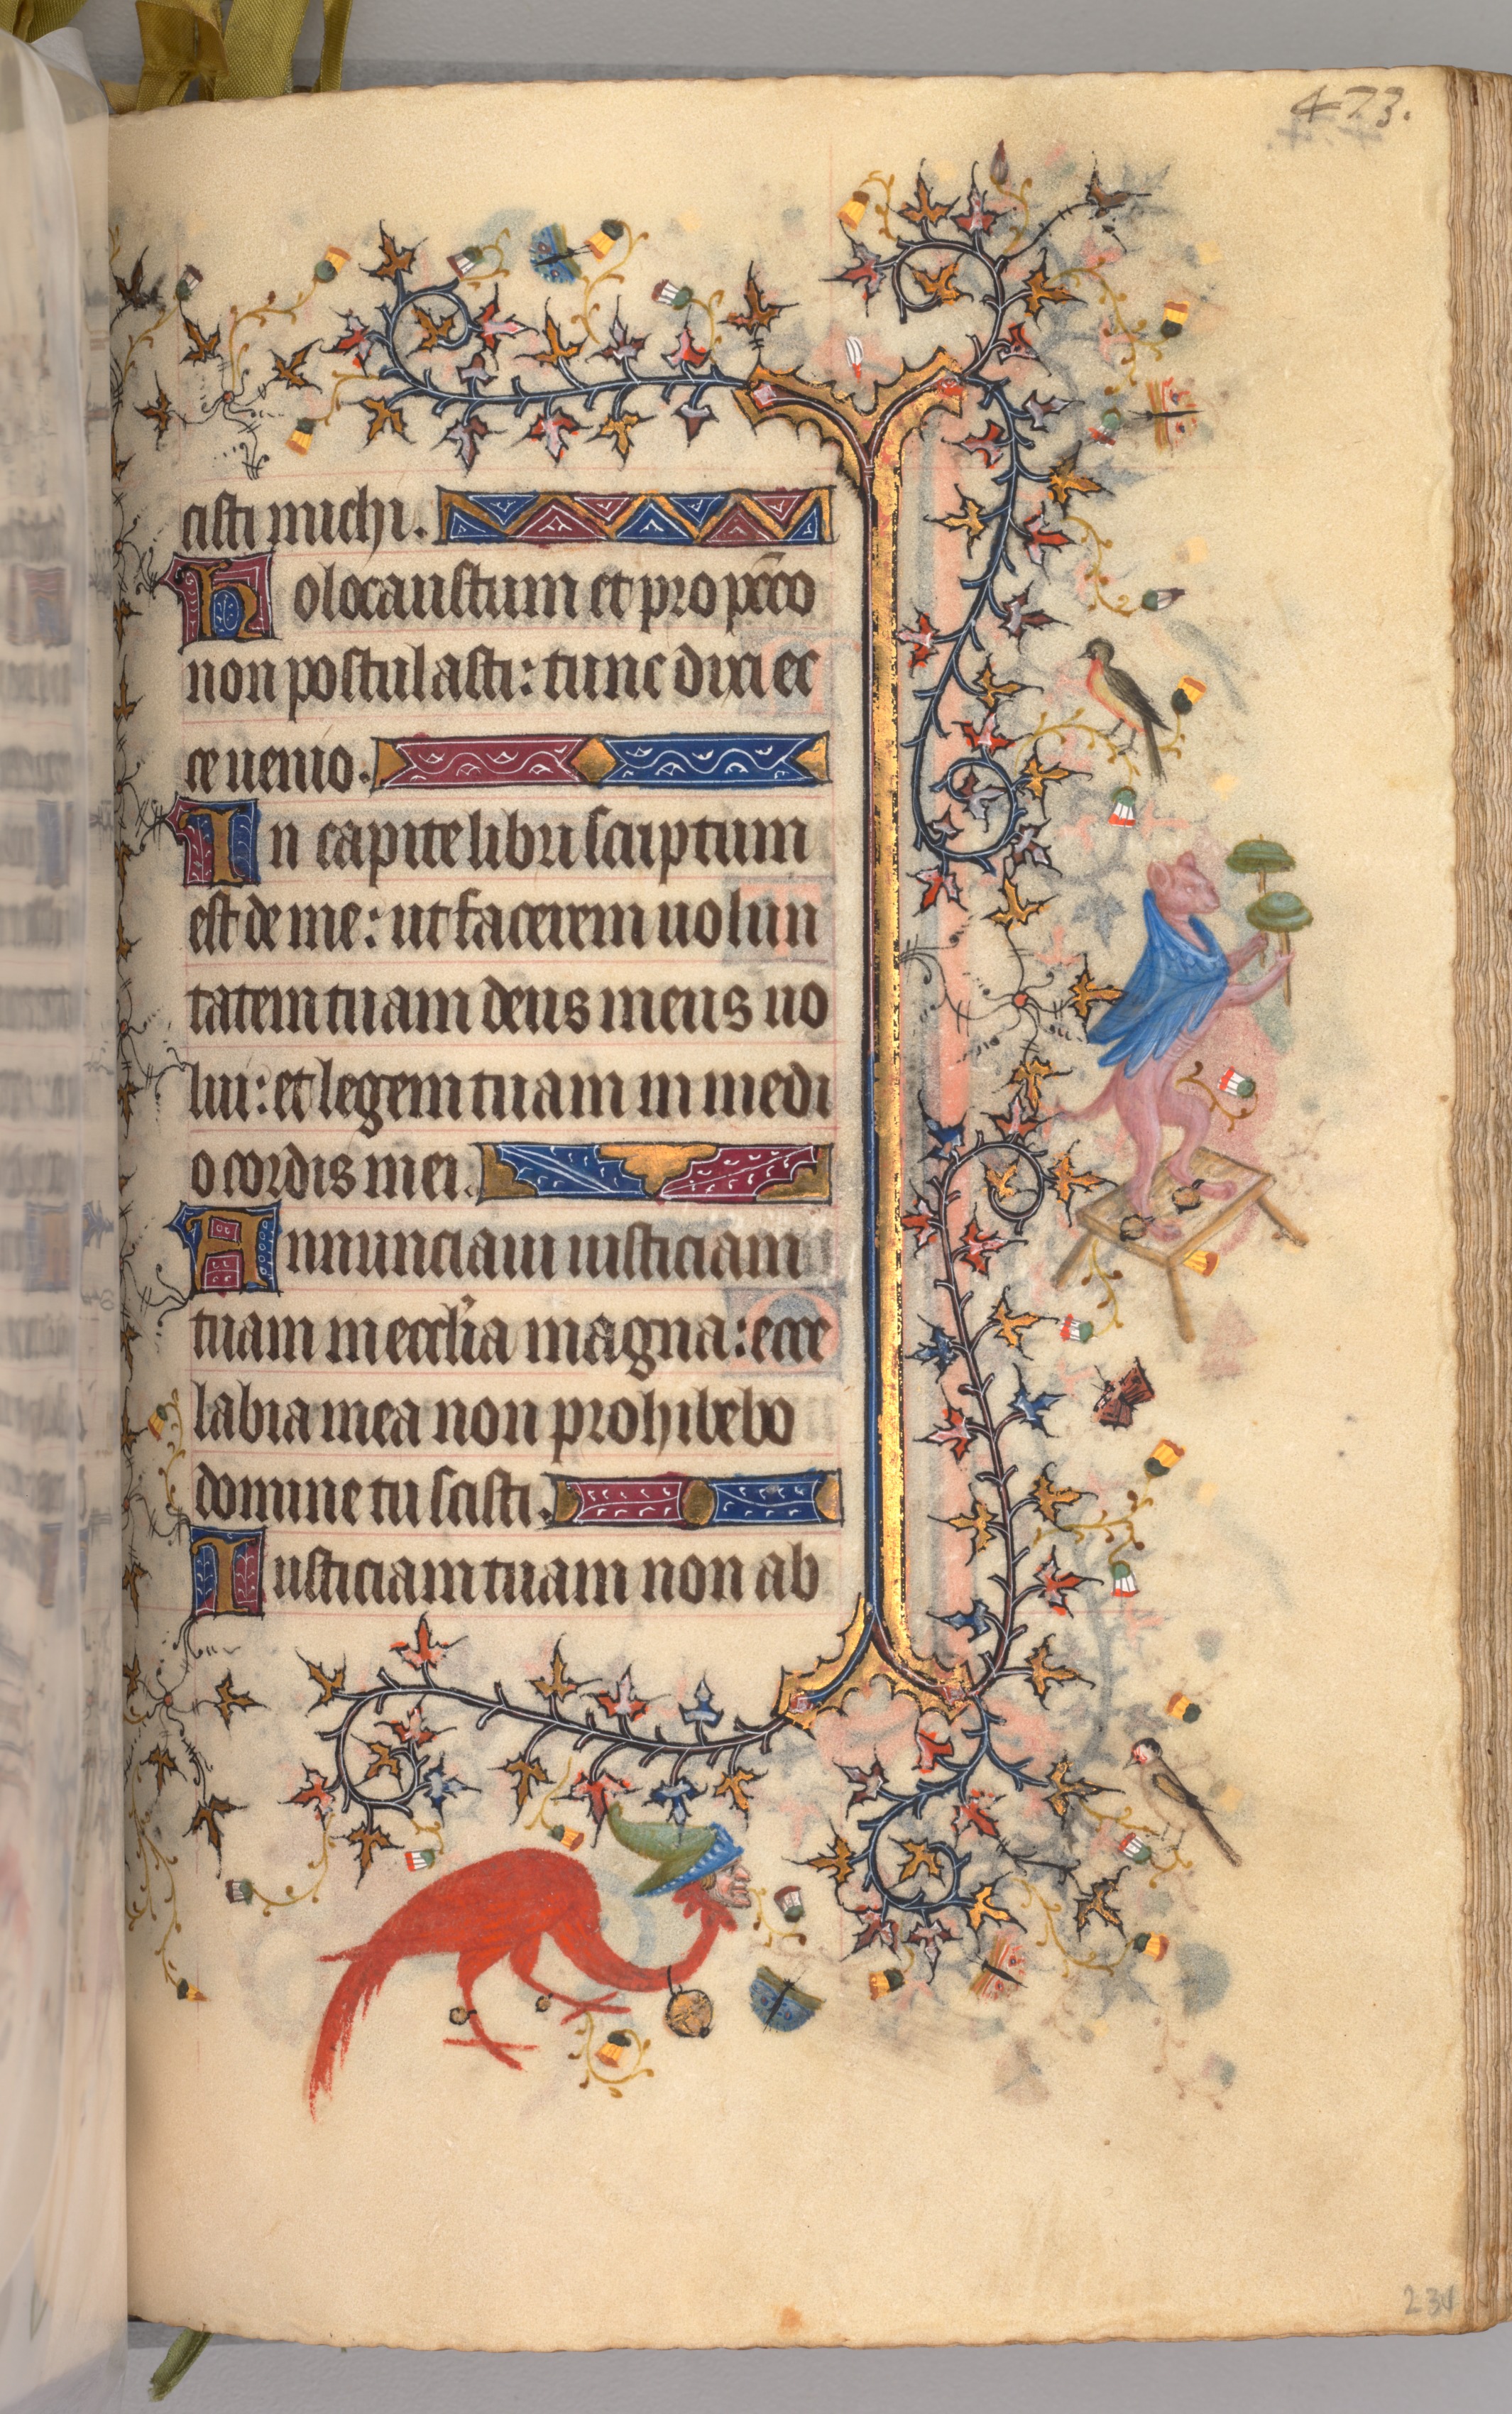 473.
cisti michi.
Holocaustum et pro pc̄co
non postulasti: tunc dixi ec
ce uenio.
In capite libri scriptum
est de me: ut facerem uolun
tatem tuam deus meus uo
lui: et legem tuam in medi
o cordis mei.
Annunciaui iusticiam
tuam in eccl'ia magna: ecce
labia mea non prohibebo
domine tu scisti.
Iusticiam tuam non ab